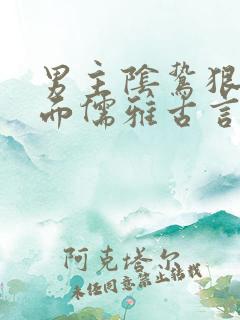 男主陰鷙狠
而儒雅古言
阿克塔尔
未经同意禁止转载